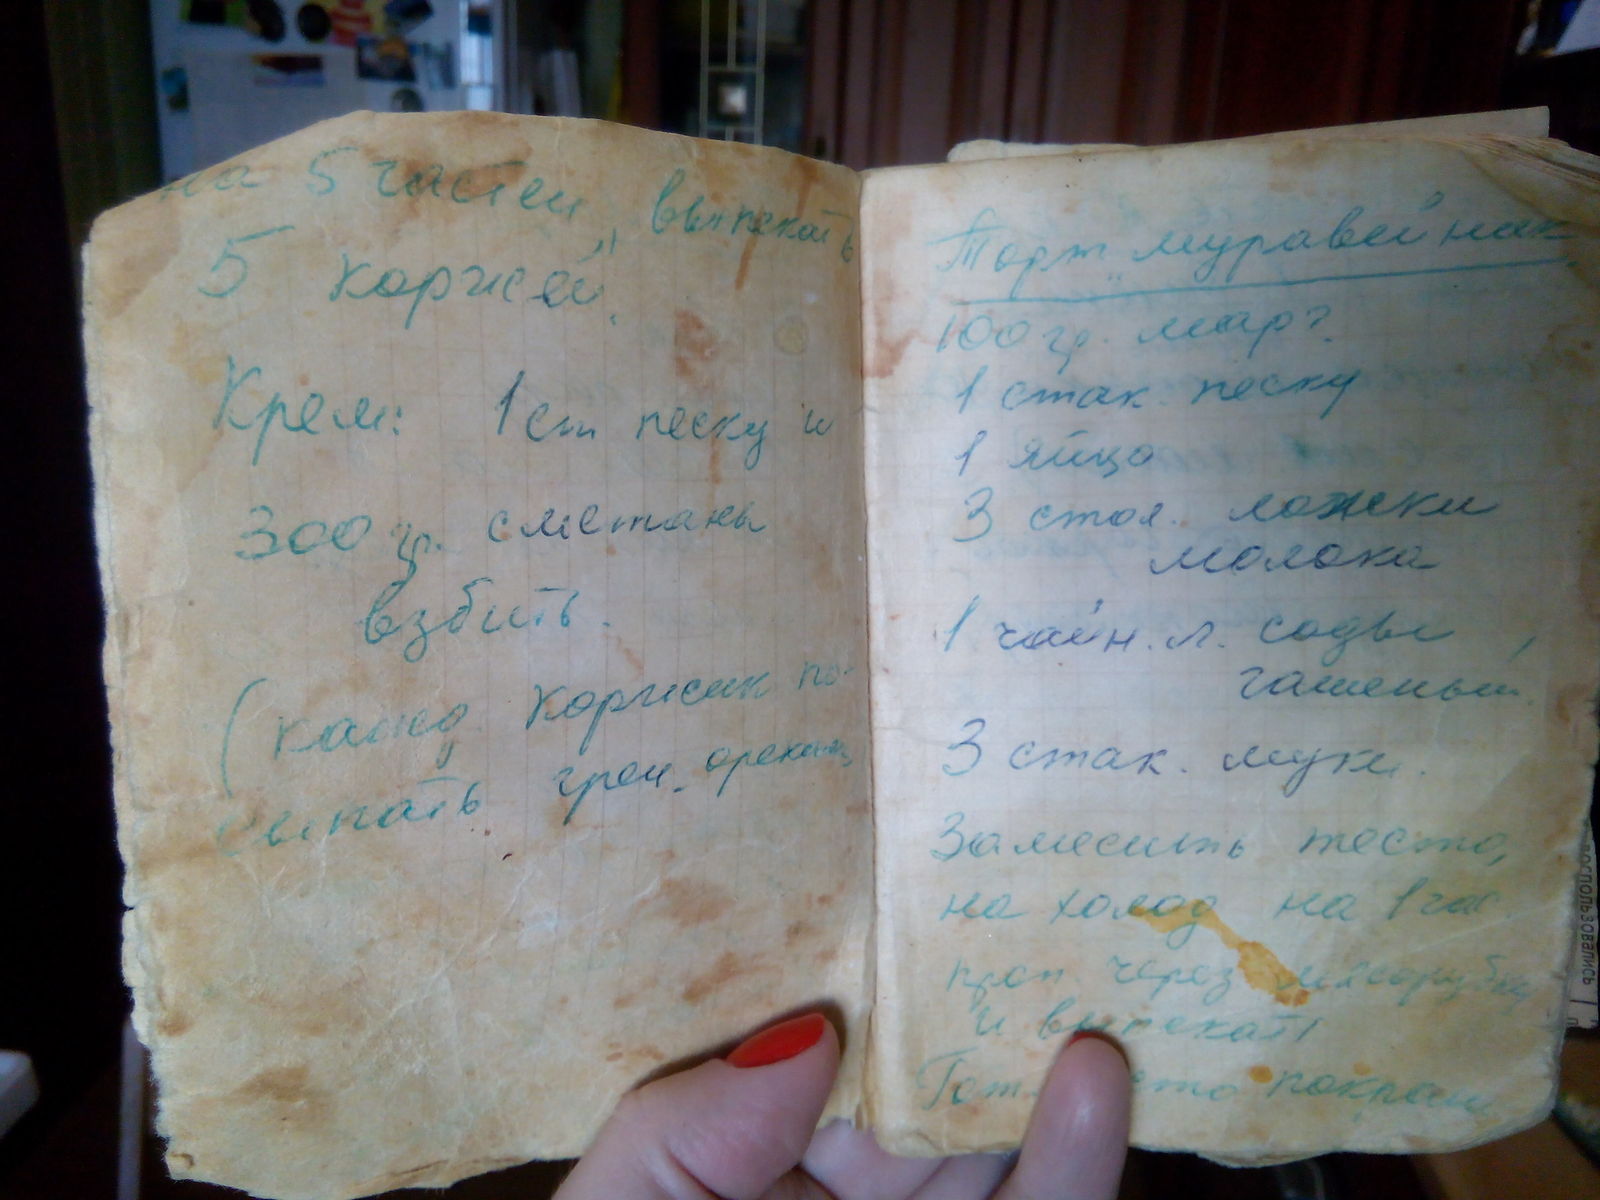 на 5 частей, выпекать
5 коржей.
Крем: 1 ст песку и
300 гр. сметаны
взбить.
(кажд коржик по-
сыпать грец. орехами
Торт „муравейник"
100 гр. марг.
1 стак. песку
1 яйцо
3 стол. ложки
молока
1 чайн. л. соды,
гашеный.
3 стак. муки.
Замесить тесто,
на холод на 1 час.
проп через мясорубку
и выпекать
Гот. покрош
воспользовались